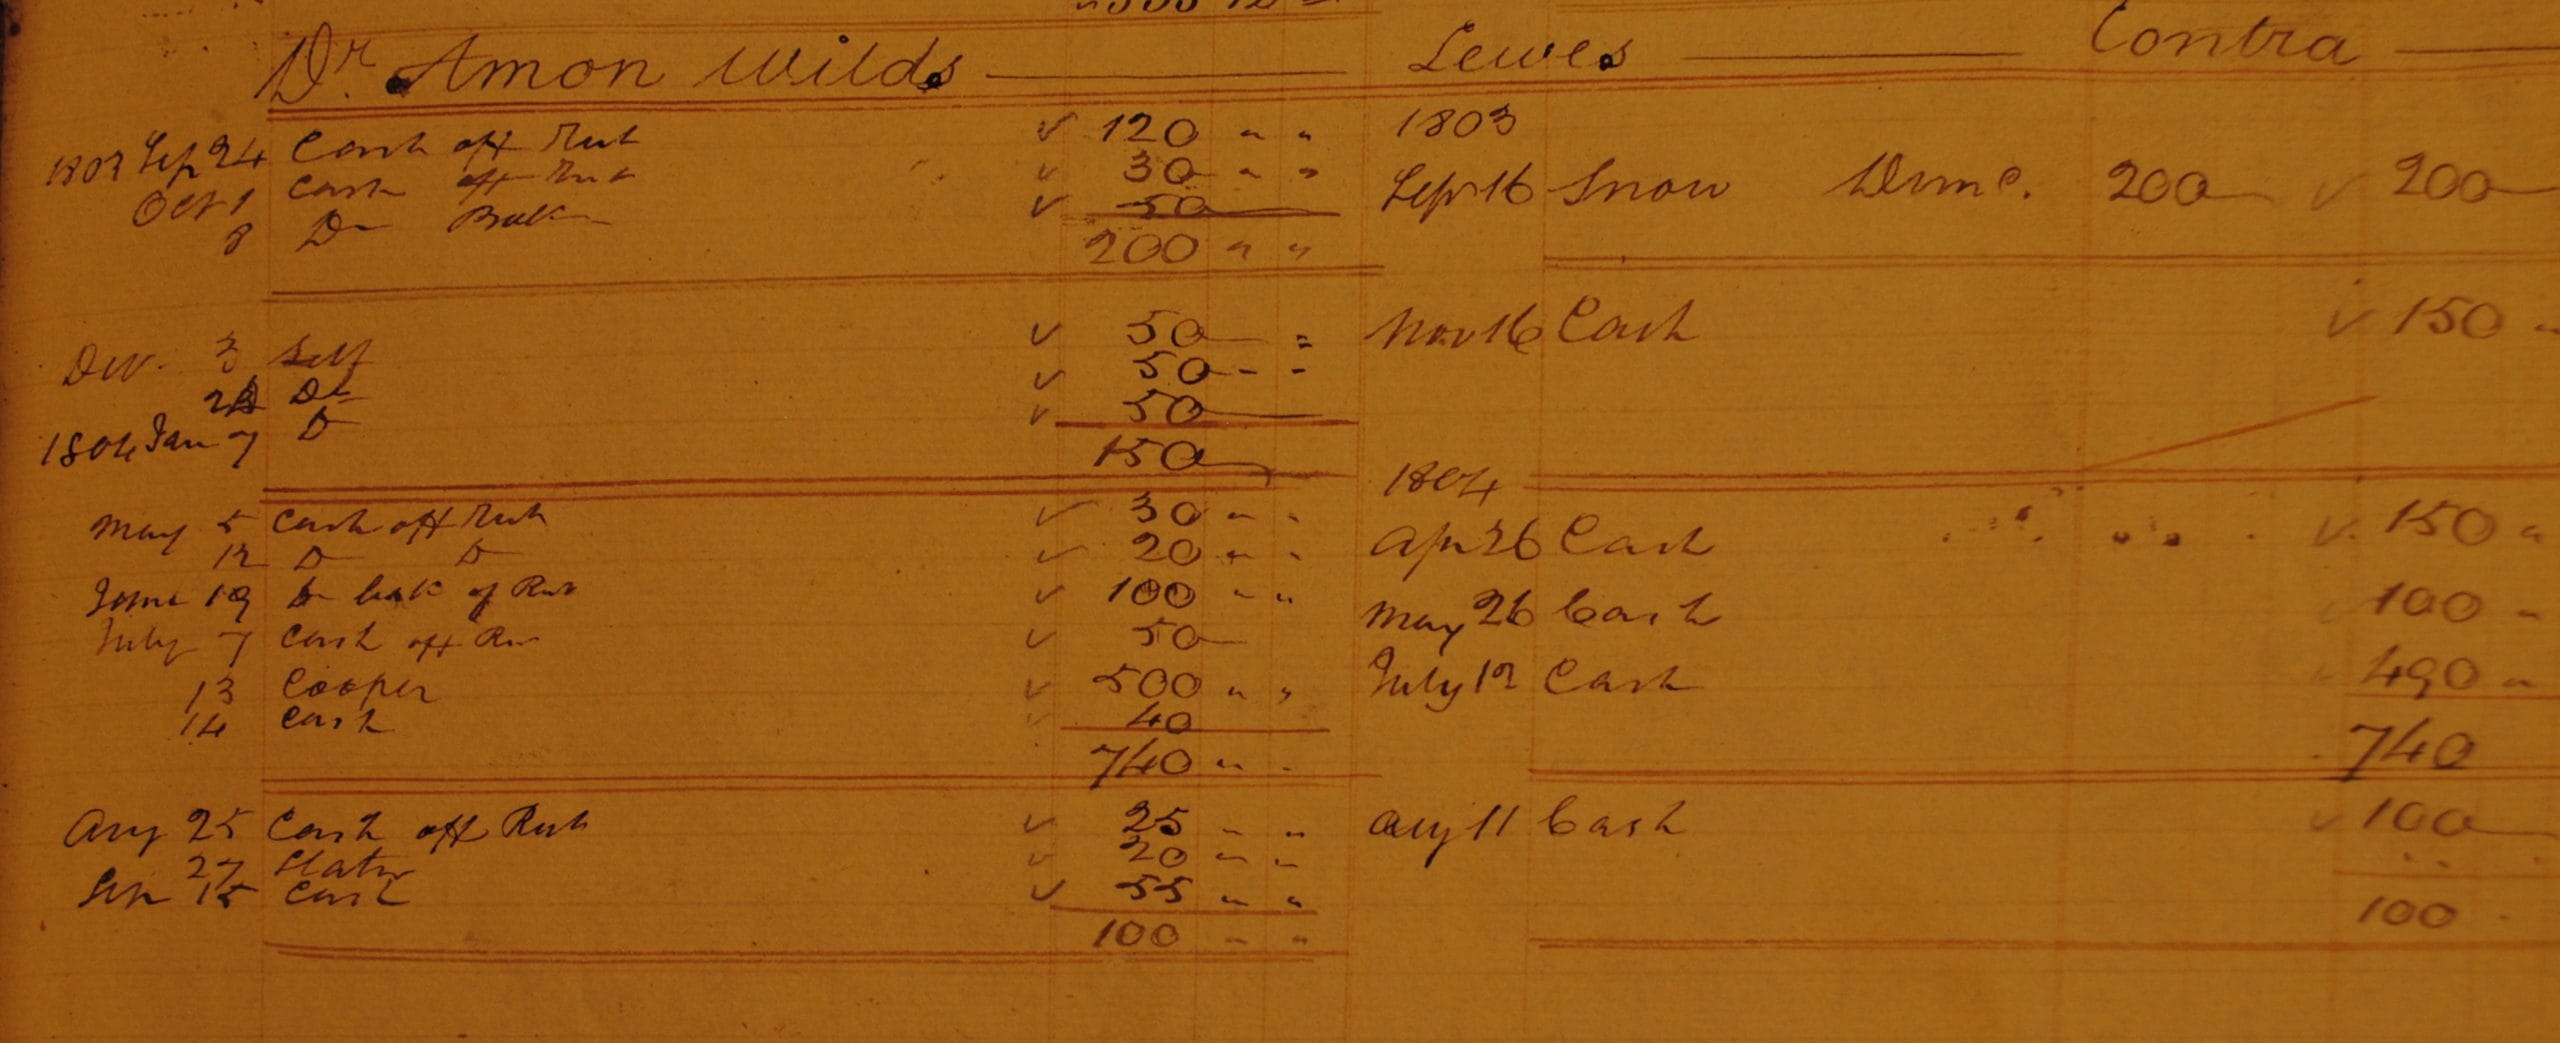 Dr. Amon Wilds Lewes Contra
1803 Sep 24 Cash off 120 " " 1803
Oct 1 Cash off 30 " " Sepr 16 Snow 200 200
8 Do 50
200 " "
Nov 16 Cash 150 "
Dec. 3 Self 50 "
Do 50 " "
1804 Jan 7 Do 50
150
1804
May 5 Cash off 30 " " Apr 26 Cash 150 "
12 Do Do 20 " "
June 19 Do of 100 " " May 26 Cash 100 "
July 7 Cash off 50
13 Cooper 500 " " July 12 Cash 490 "
14 Cash 40
740 " " 740
Aug 25 Cash off 25 " " Aug 11 Cash 100
27 Slater 20 " "
Sep 15 Cash 55 " "
100 " " 100